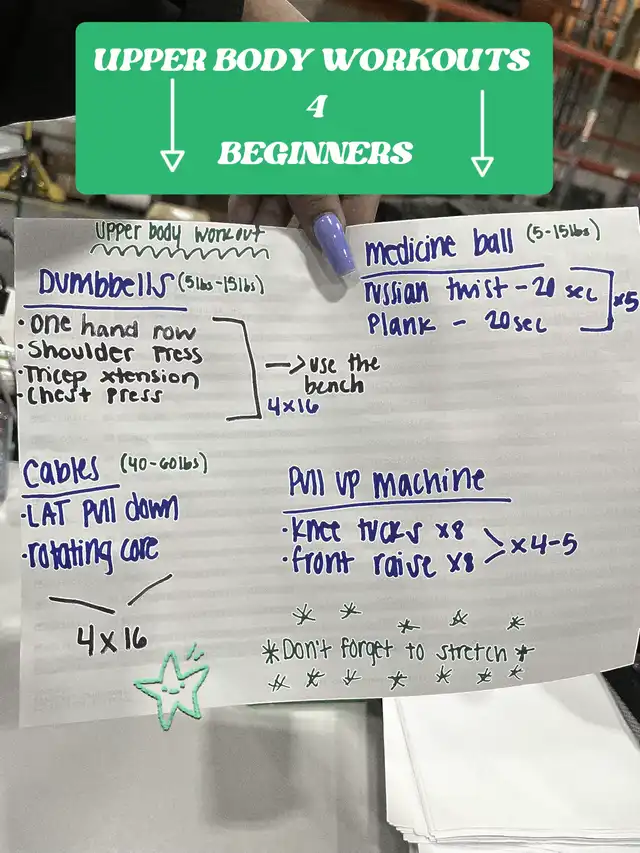 UPPER BODY WORKOUTS
4
BEGINNERS
upper body workout
Dumbbells (5lbs-15lbs)
• one hand row
• Shoulder Press
• Tricep xtension
• Chest press
→ use the
bench
4x16
medicine ball (5-15lbs)
russian twist - 20 sec
Plank - 20 sec
x5
Cables (40-60lbs)
• LAT Pull down
• rotating core
4x16
Pull up machine
• Knee tucks x8
• front raise x8
x4-5
* Don't forget to stretch *